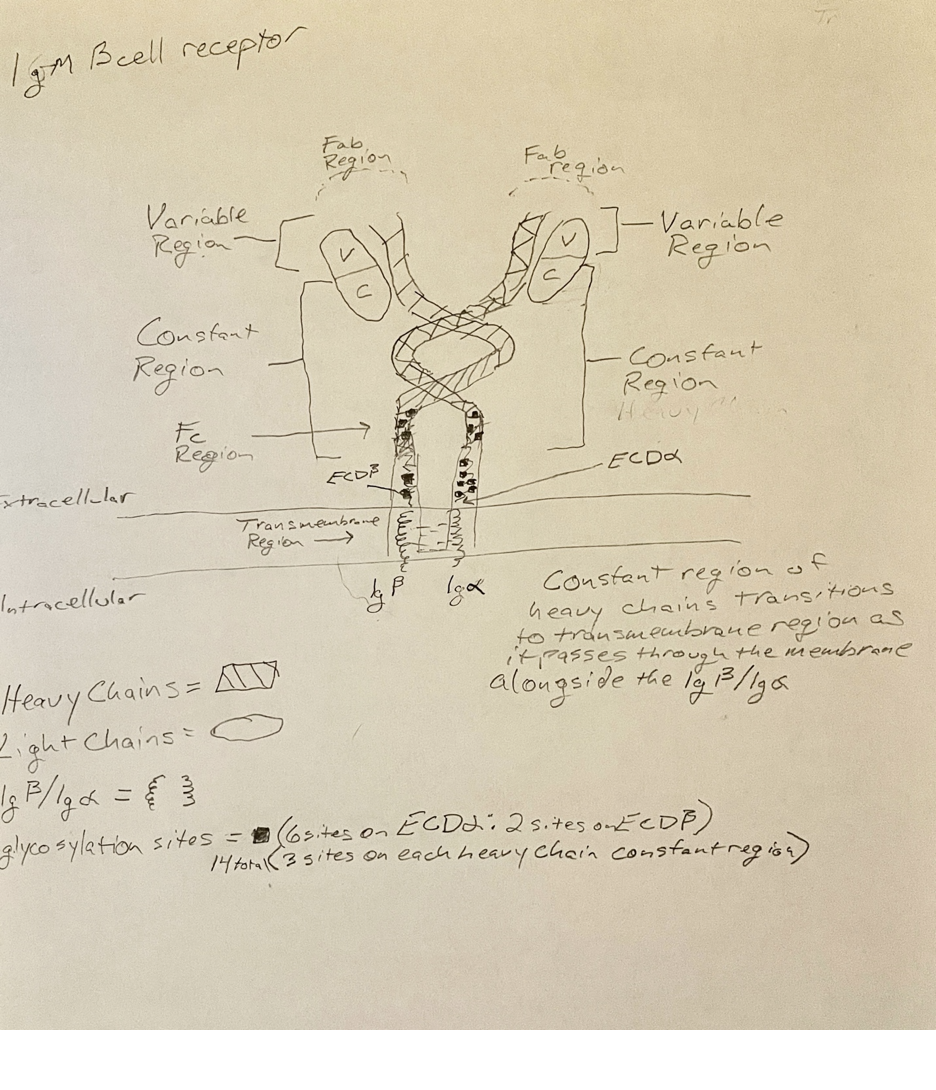 Tr
IgM B cell receptor
Fab
Region
Fab
region
Variable
Region
V
C
V
C
Variable
Region
Constant
Region
Constant
Region
Heavy
Fc
Region
ECDβ
ECDα
Extracellular
Transmembrane
Region
Intracellular
Igβ
Igα
Constant region of
heavy chains transitions
to transmembrane region as
it passes through the membrane
alongside the Igβ/Igα
Heavy Chains =
Light Chains =
Igβ/Igα =
glycosylation sites = (6 sites on ECDα: 2 sites on ECDβ)
14 total (3 sites on each heavy chain constant region)